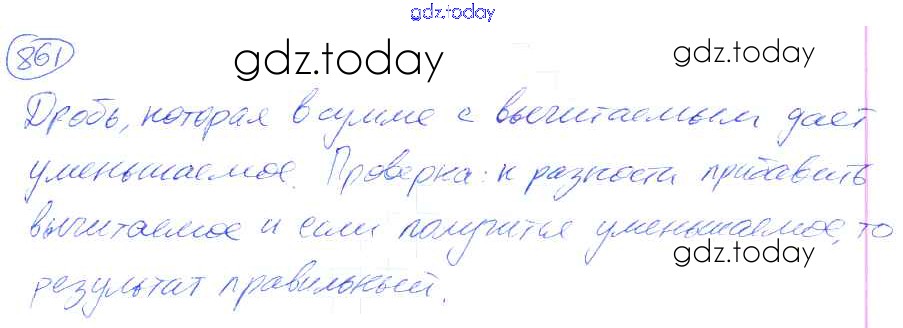 gdz.today
861
gdz.today gdz.today
Дробь, которая в сумме с вычитаемым дает
уменьшаемое. Проверка: к разности прибавить
вычитаемое и если получится уменьшаемое, то
gdz.today
результат правильный.